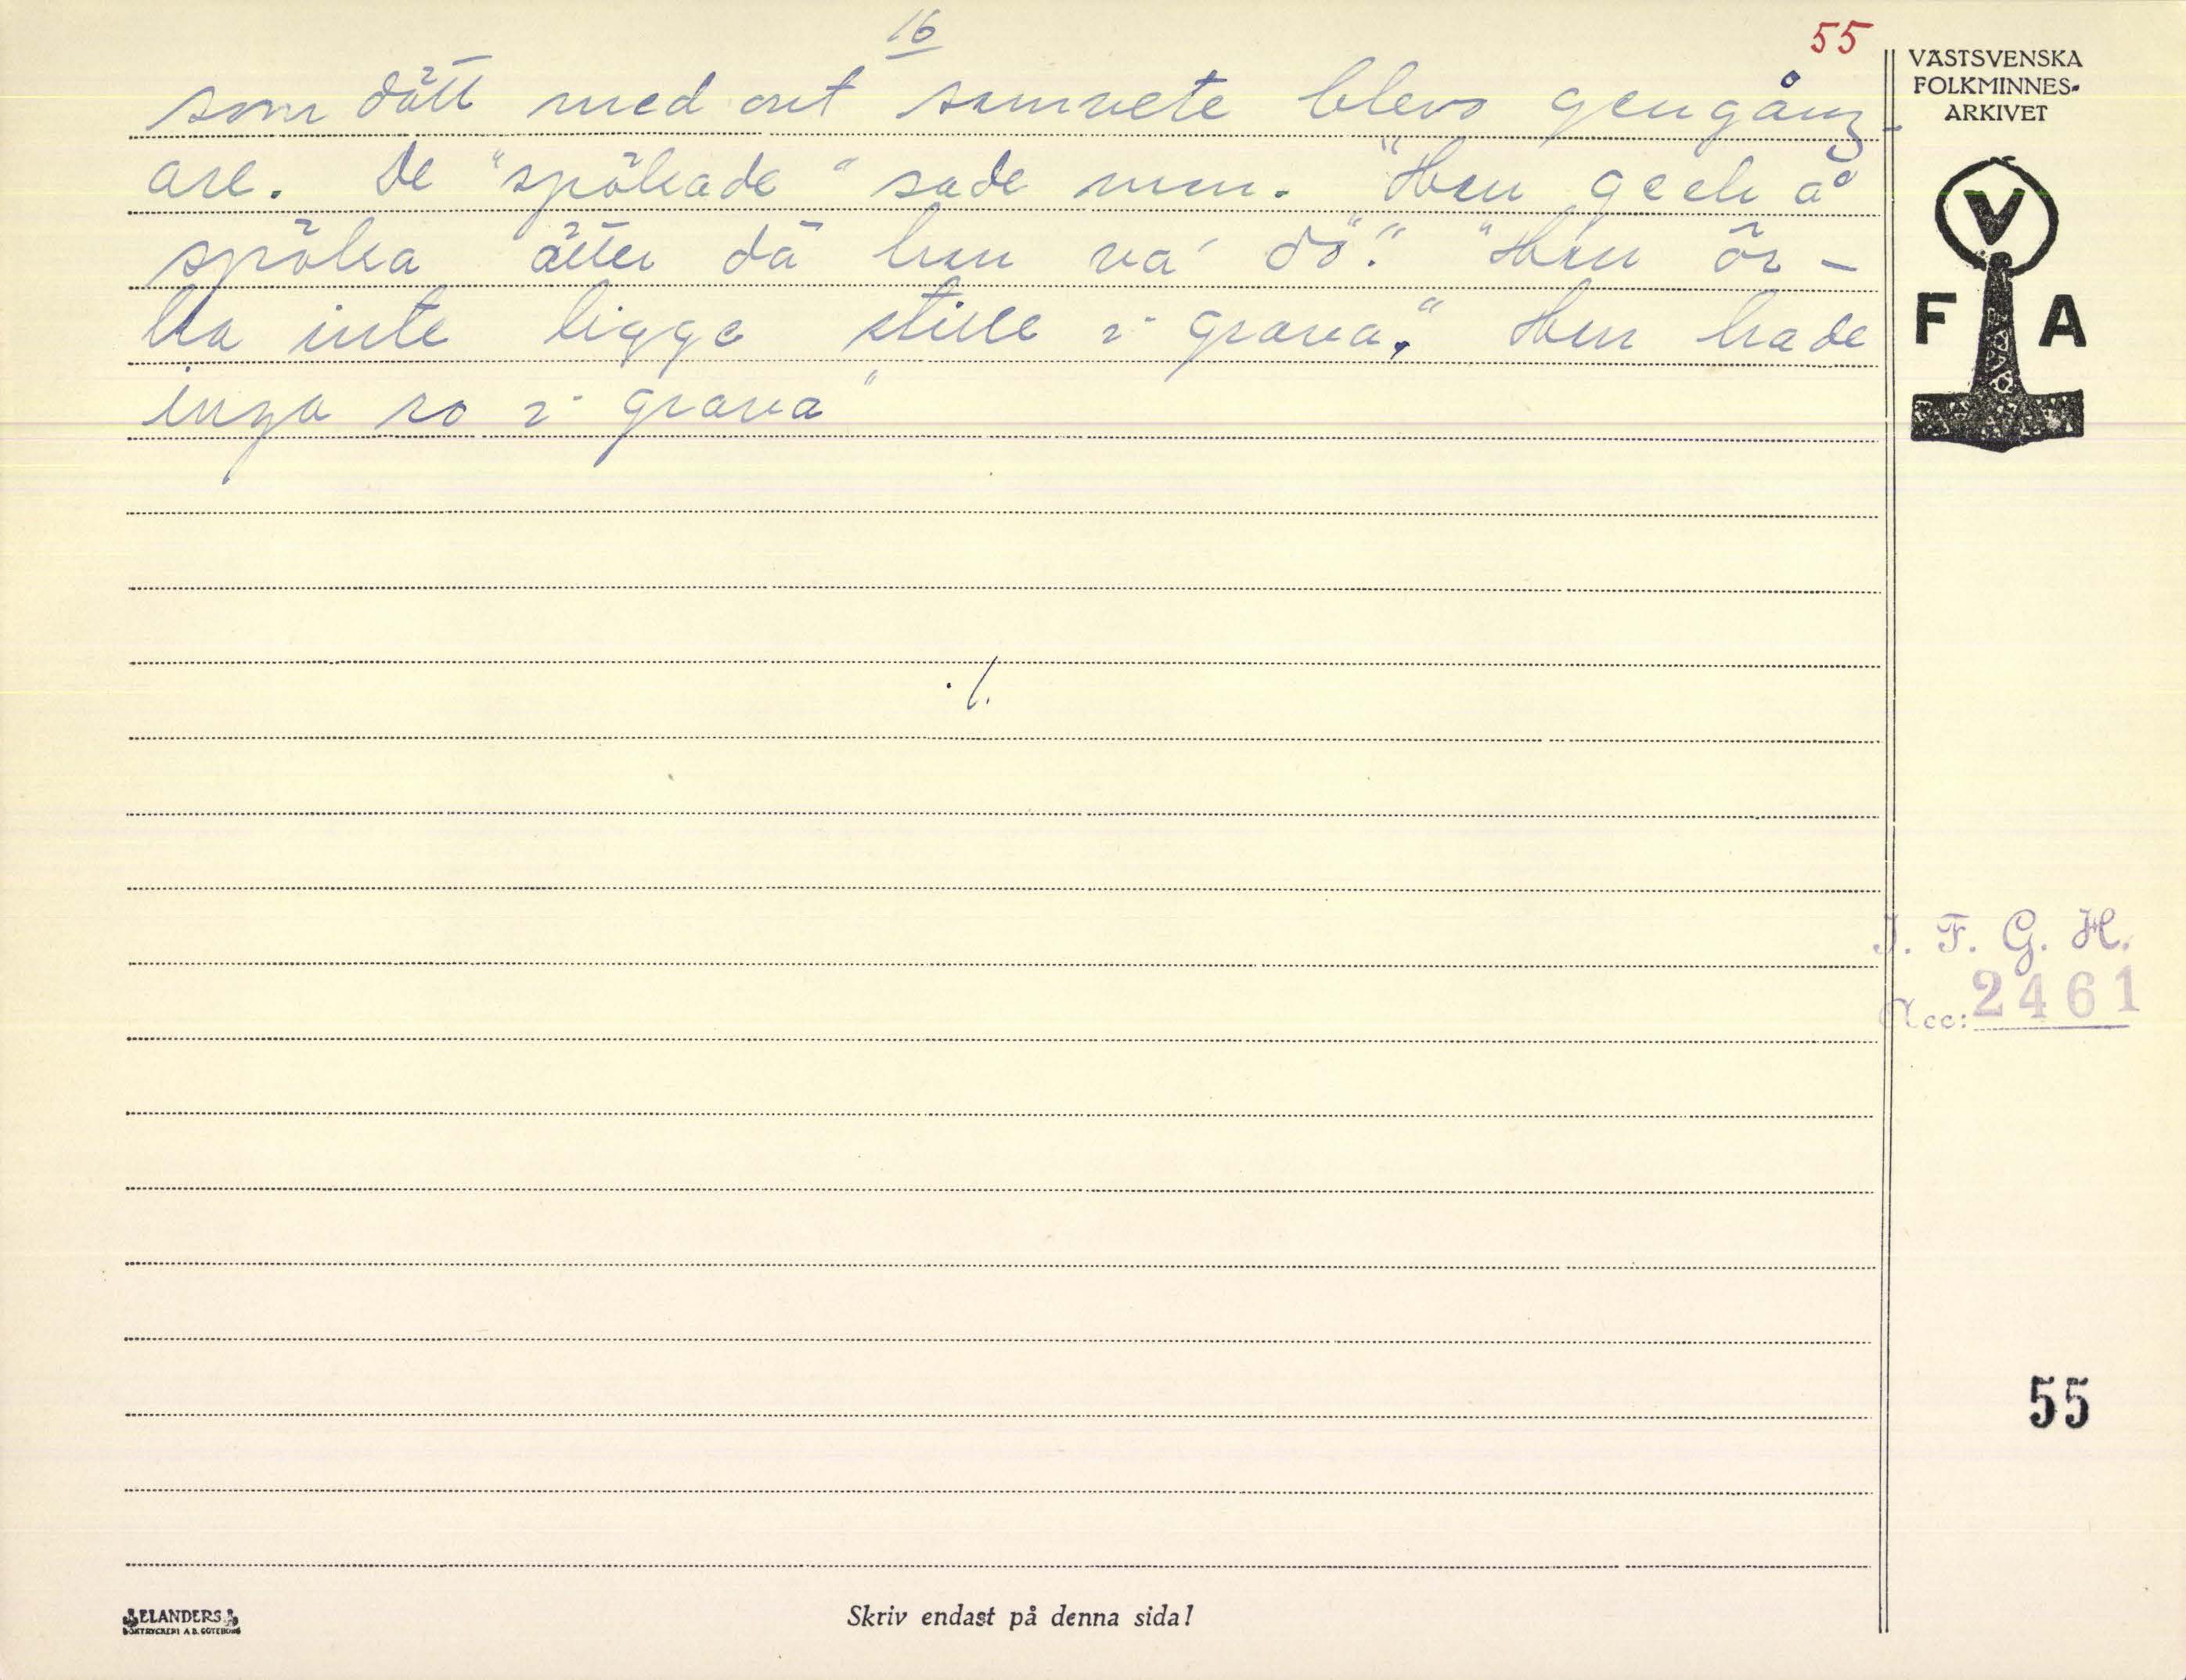 16
55
som dött med ont samvete blevo gengång-
are. De "spökade" sade man. "Hun geck å
spöka ätter dä hun va' dö". "Hun ör-
ka inte ligga stille i grava." Hun hade
inga ro i grava"
./.
VÄSTSVENSKA
FOLKMINNES-
ARKIVET
V
F A
I. F. G. H.
Acc: 2461
55
ELANDERS
BOKTRYCKERI A.B. GÖTEBORG
Skriv endast på denna sida!